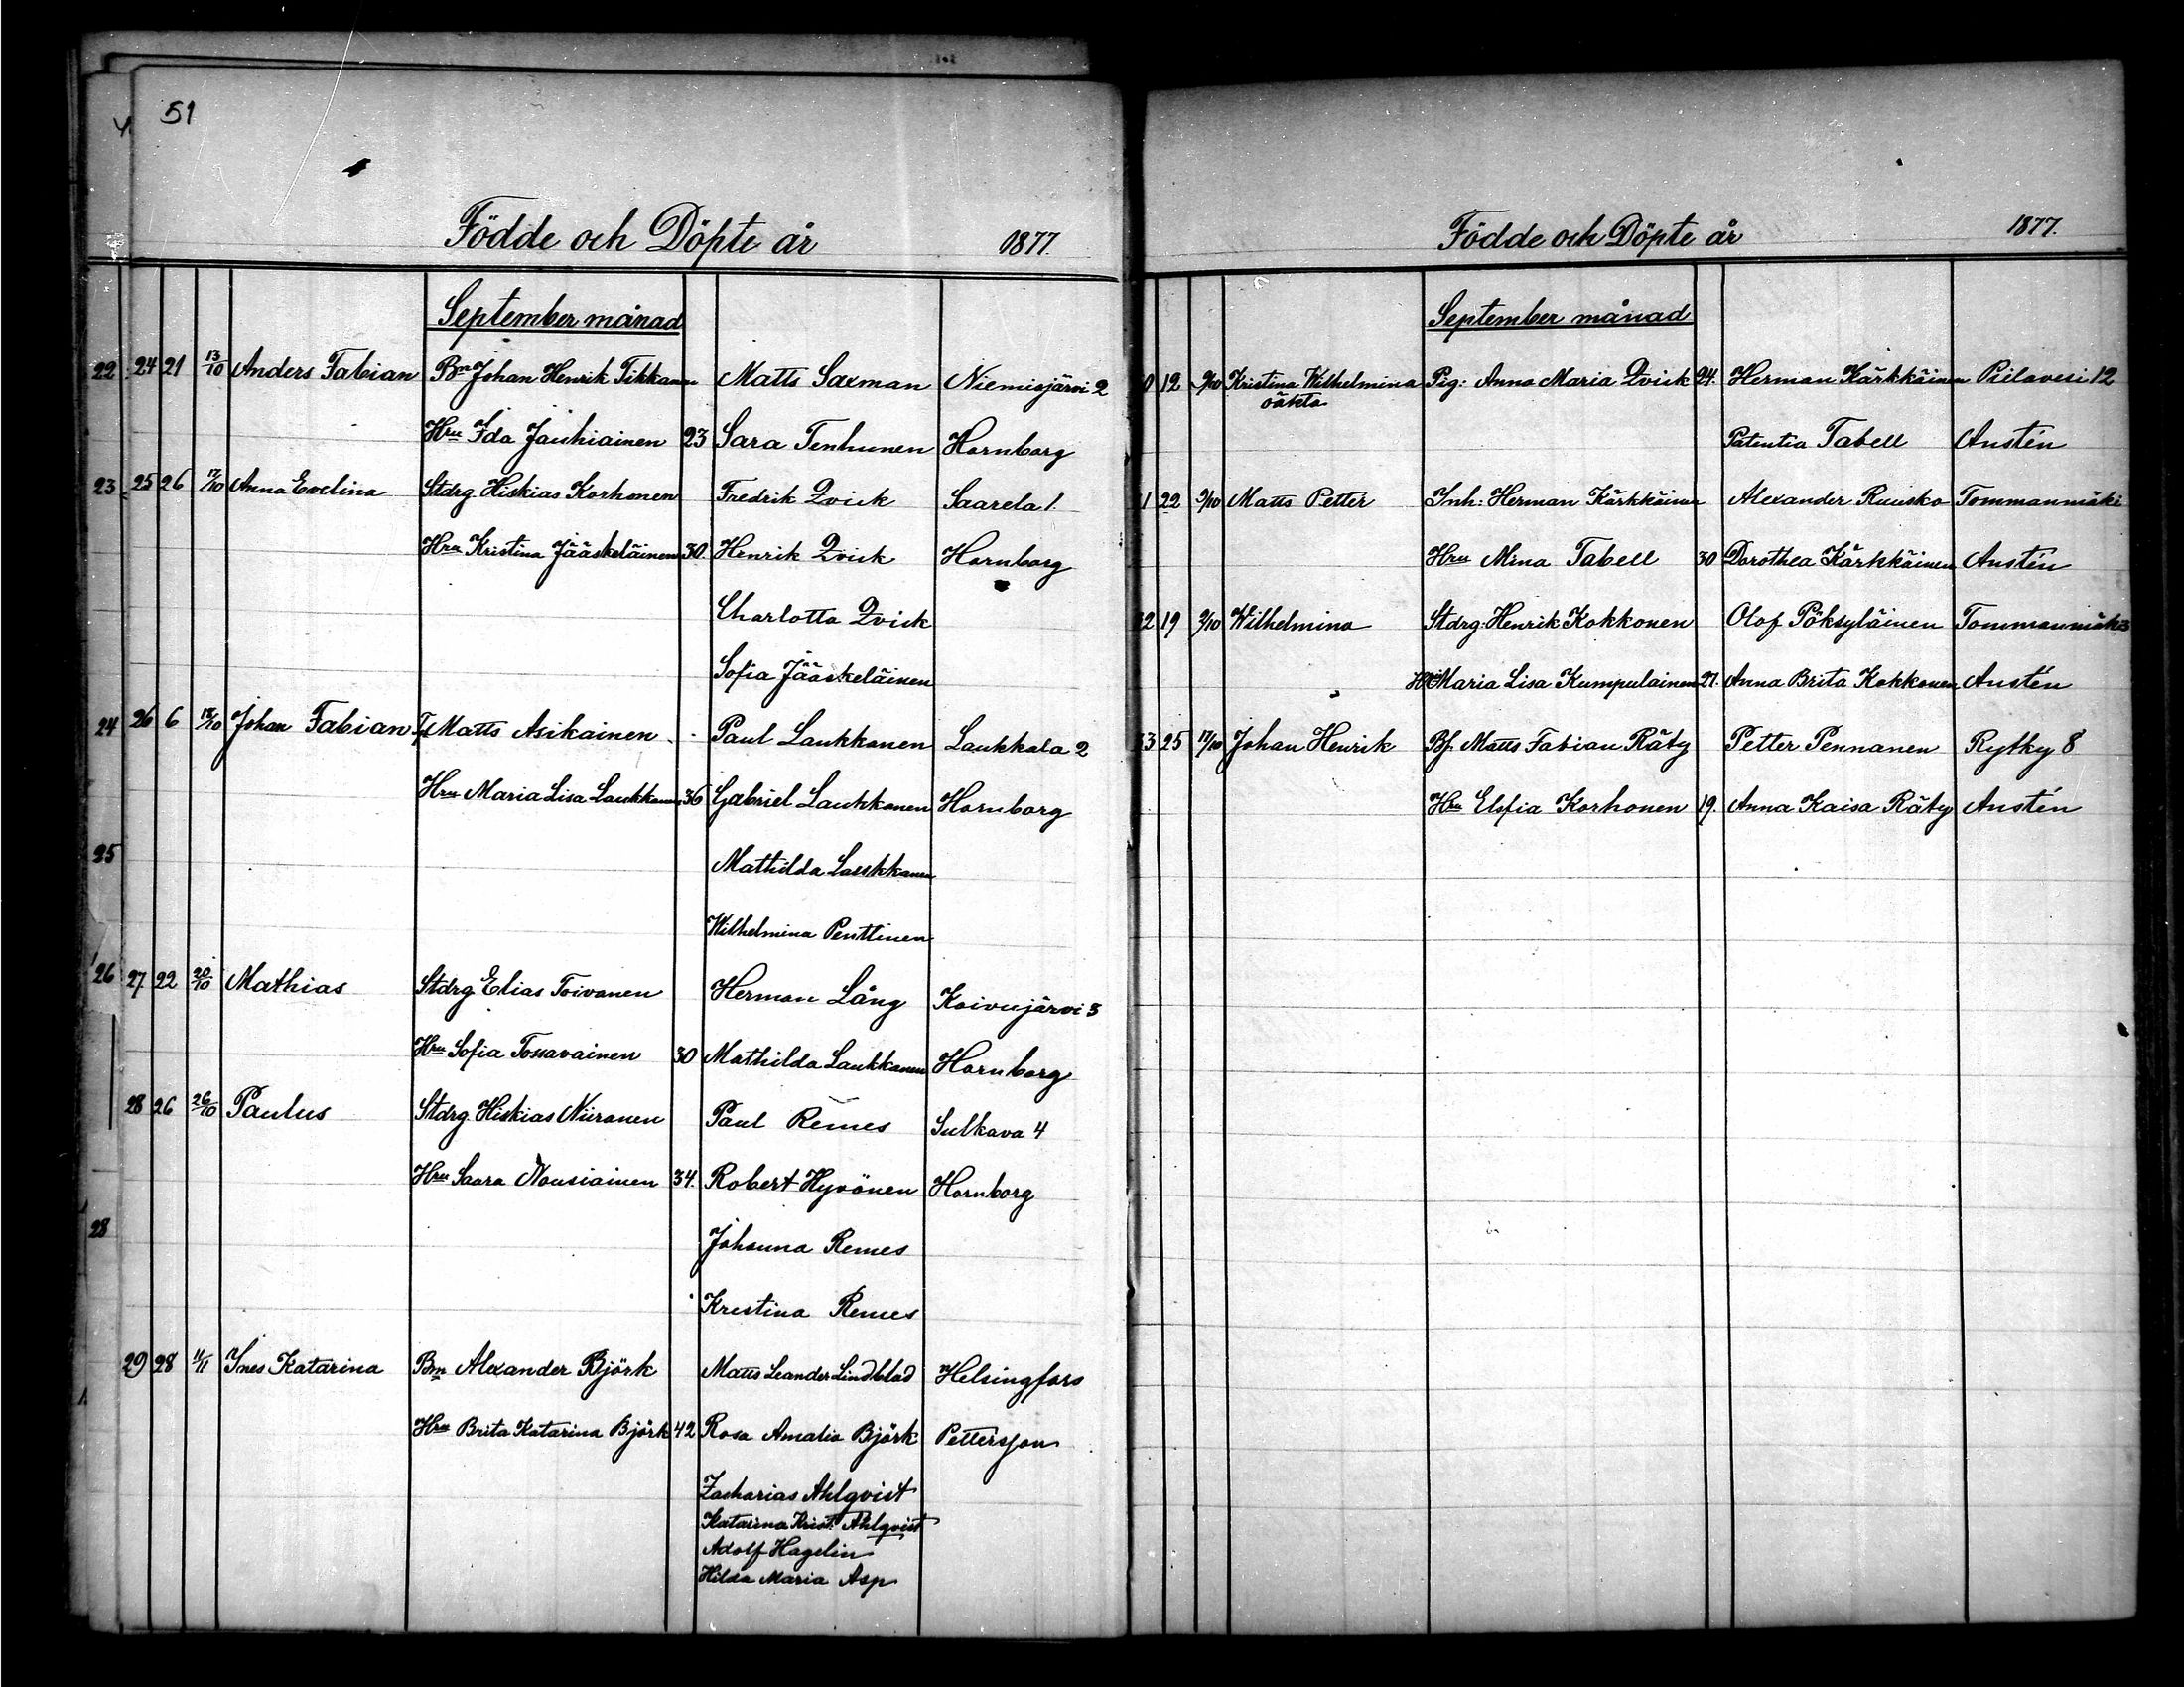 51
Födde och Döpte år 1877.
September månad
22 24 21 13/10 Anders Fabian Bm Johan Henrik Tikkanen Matts Saxman Niemisjärvi 2
Hru Ida Jauhiainen 23 Sara Tenhunen Hornborg
23 25 26 17/10 Anna Evelina Stdrg Hiskias Korhonen Fredrik Qvick Saarela 1.
Hru Kristina Jääskeläinen 30. Henrik Qvick Hornborg
Charlotta Qvick
Sofia Jääskeläinen
24 26 6 18/10 Johan Fabian Matts Asikainen Paul Laukkanen Laukkala 2
Hru Maria Lisa Laukkanen 36 Gabriel Laukkanen Hornborg
25 Mathilda Laukkanen
Wilhelmina Penttinen
26 27 22 20/10 Mathias Stdrg Elias Toivanen Herman Lång Koivujärvi 3
Hru Sofia Tossavainen 30 Mathilda Laukkanen Hornborg
28 26 26/10 Paulus Stdrg Hiskias Niiranen Paul Remes Sulkava 4
Hru Saara Nousiainen 34. Robert Hyvönen Hornborg
28 Johanna Remes
Kristina Remes
29 28 11/11 Ines Katarina Bm Alexander Björk Matts Leander Lindblad Helsingfors
Hru Brita Katarina Björk 42 Rosa Amalia Björk Pettersson
Zacharias Ahlqvist
Katarina Krist. Ahlqvist
Adolf Hagelin
Hilda Maria Asp
Födde och Döpte år 1877.
September månad
0 12 Kristina Wilhelmina Pig: Anna Maria Qvick 24. Herman Kärkkäinen Pielavesi 12
oäkta Patentia Tabell Austén
1 22 9/10 Matts Petter Inh: Herman Kärkkäinen Alexander Ruusko Tommanmäki
Hru Mina Tabell 30 Dorothea Kärkkäinen Austén
2 19 9/10 Wilhelmina Stdrg: Henrik Kokkonen Olof Pöksyläinen Tommanmäki 3
Maria Lisa Kumpulainen 27. Anna Brita Kokkonen Austén
3 25 17/10 Johan Henrik Bf. Matts Fabian Räty Petter Pennanen Rytky 8
Hru Elsfia Korhonen 19. Anna Kaisa Räty Austén